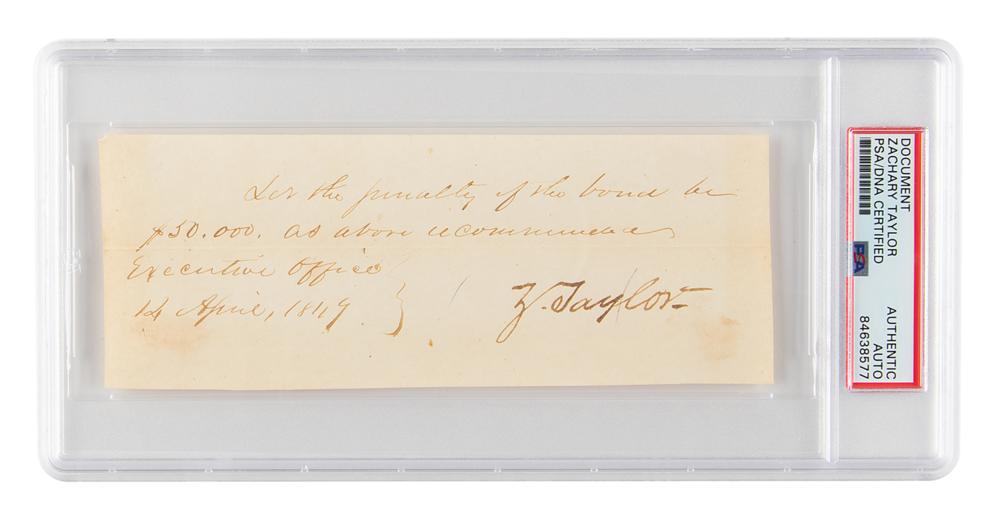 Let the penalty of the bond be
$30.000. as above recommended
Executive Office
14 April, 1849 }
Z. Taylor
DOCUMENT
ZACHARY TAYLOR
PSA/DNA CERTIFIED
PSA
AUTHENTIC
AUTO
84638577